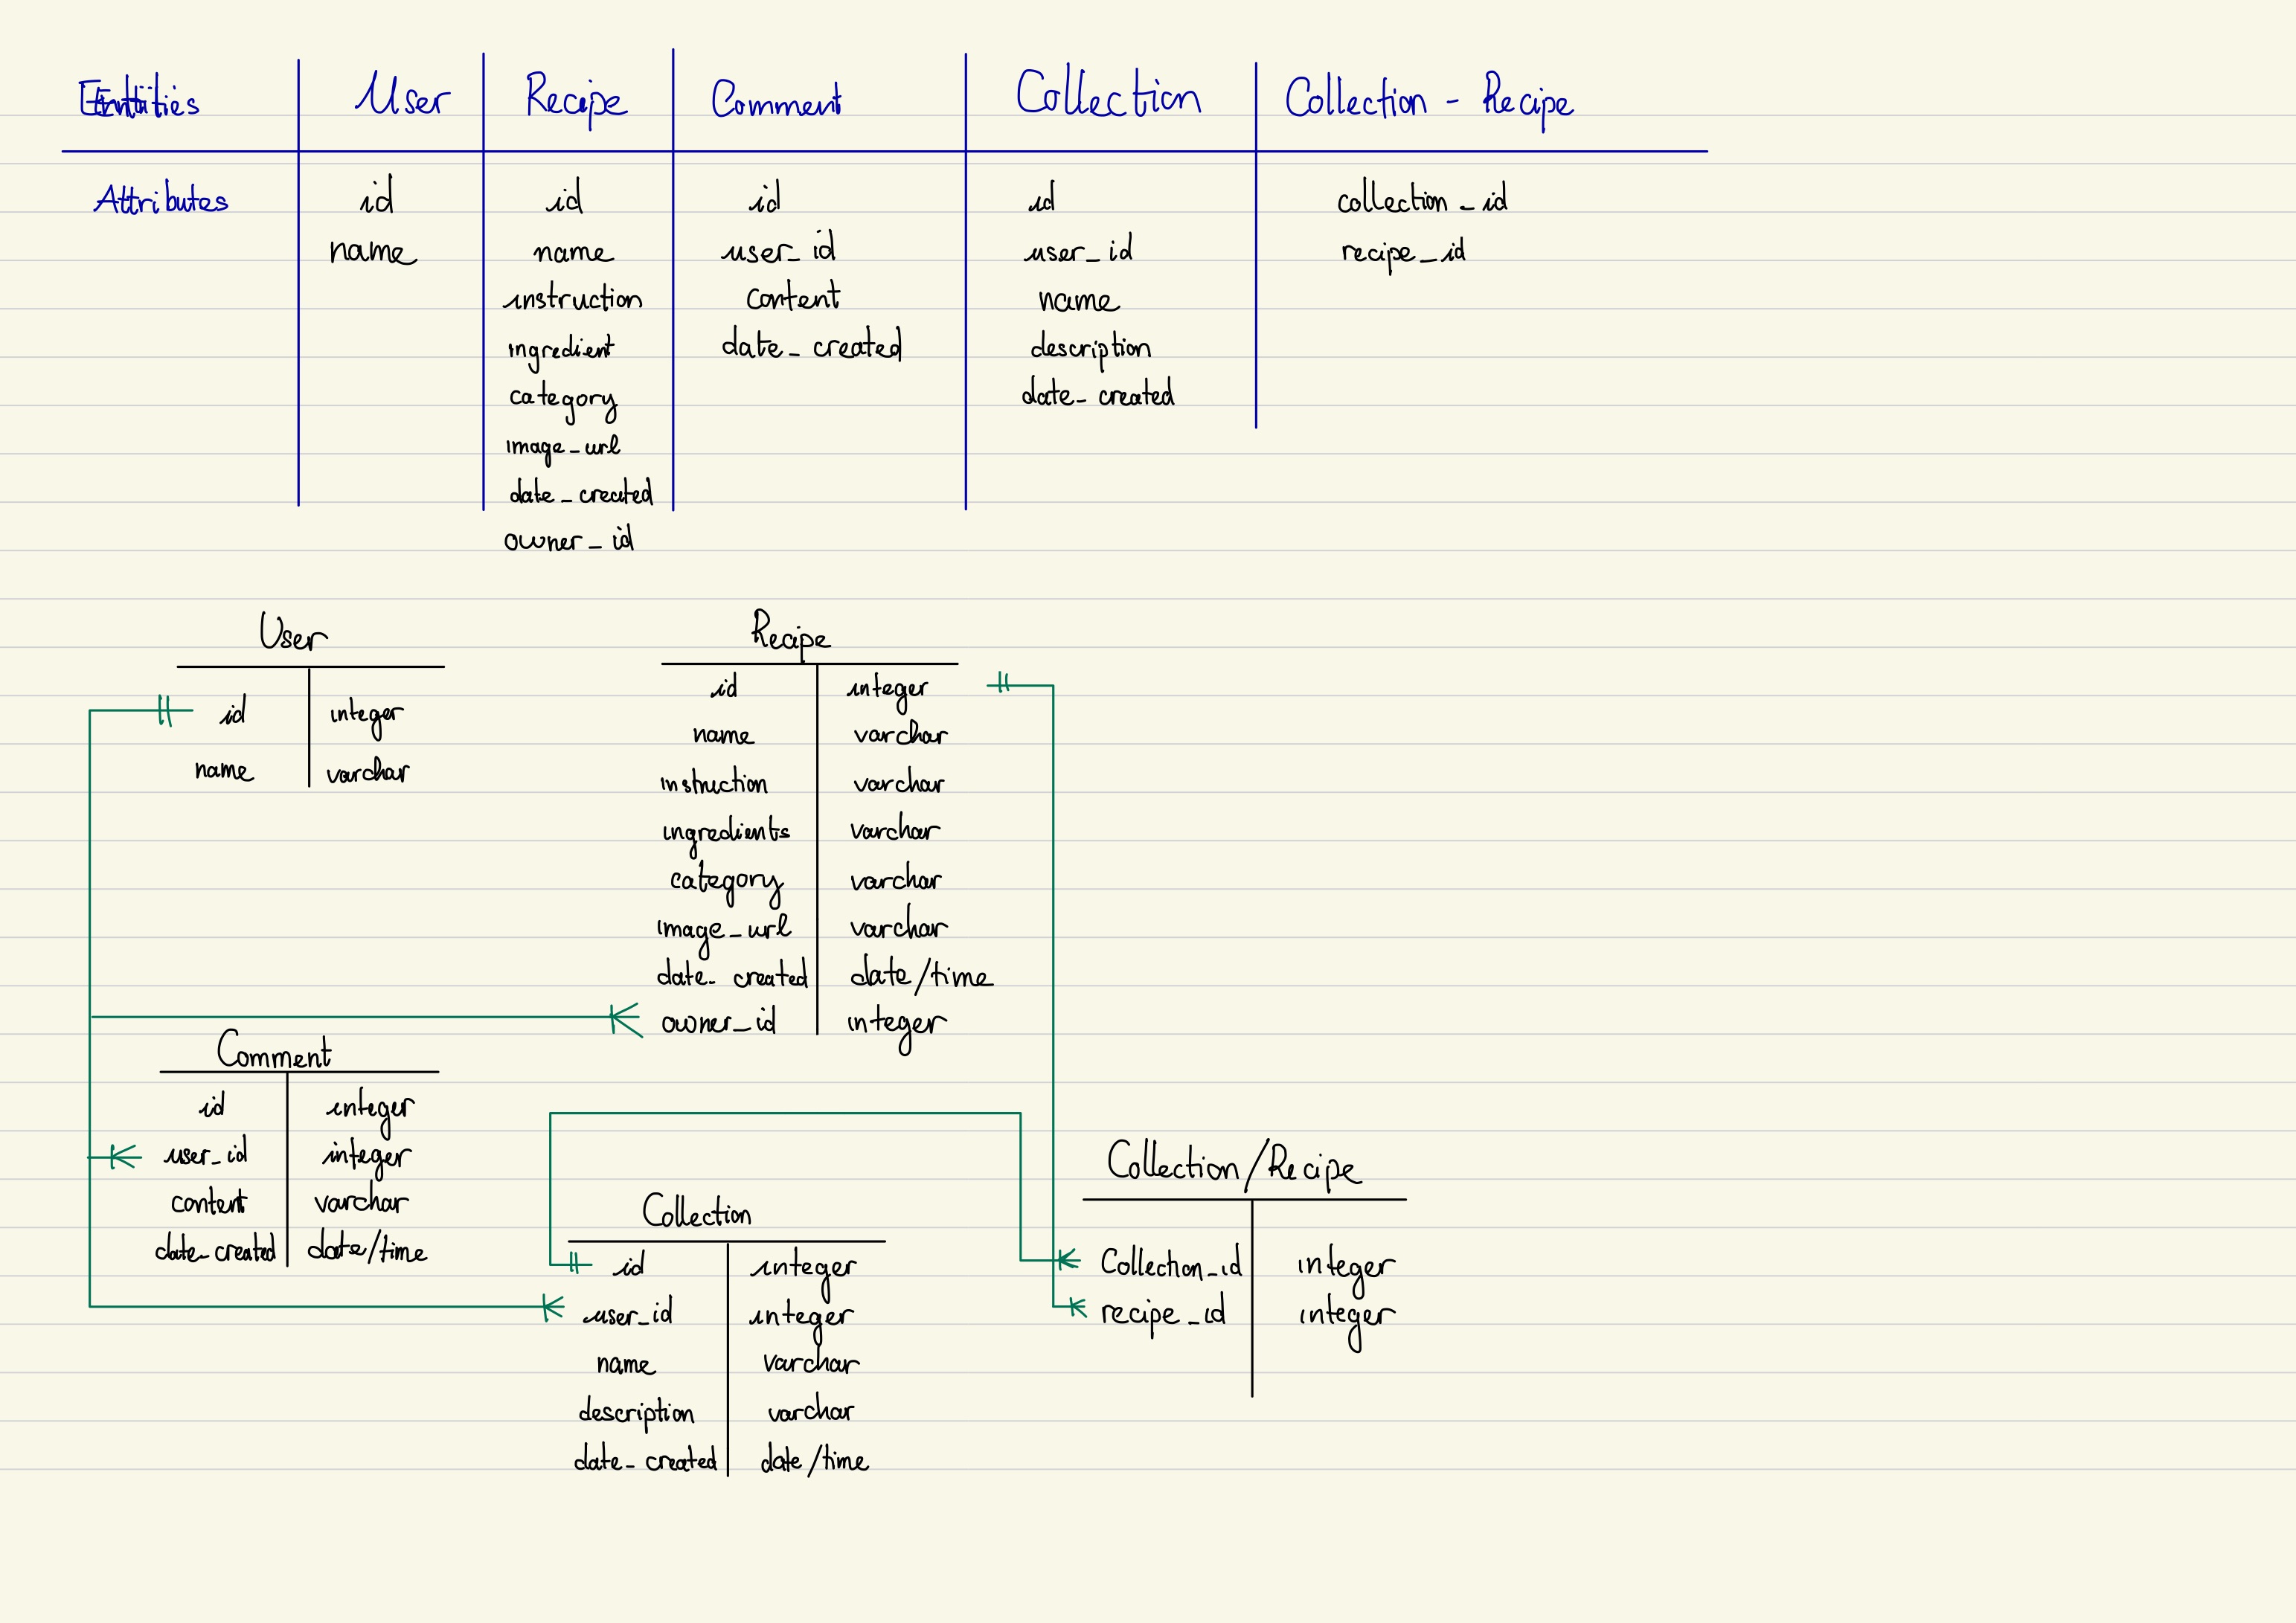 Entities User Recipe Comment Collection Collection - Recipe
Attributes id id id id collection_id
name name user_id user_id recipe_id
instruction content name
ingredient date_created description
category date_created
image_url
date_created
owner_id
User
id integer
name varchar
Recipe
id integer
name varchar
instruction varchar
ingredients varchar
category varchar
image_url varchar
date_created date/time
owner_id integer
Comment
id integer
user_id integer
content varchar
date_created date/time
Collection
id integer
user_id integer
name varchar
description varchar
date_created date/time
Collection/Recipe
Collection_id integer
recipe_id integer